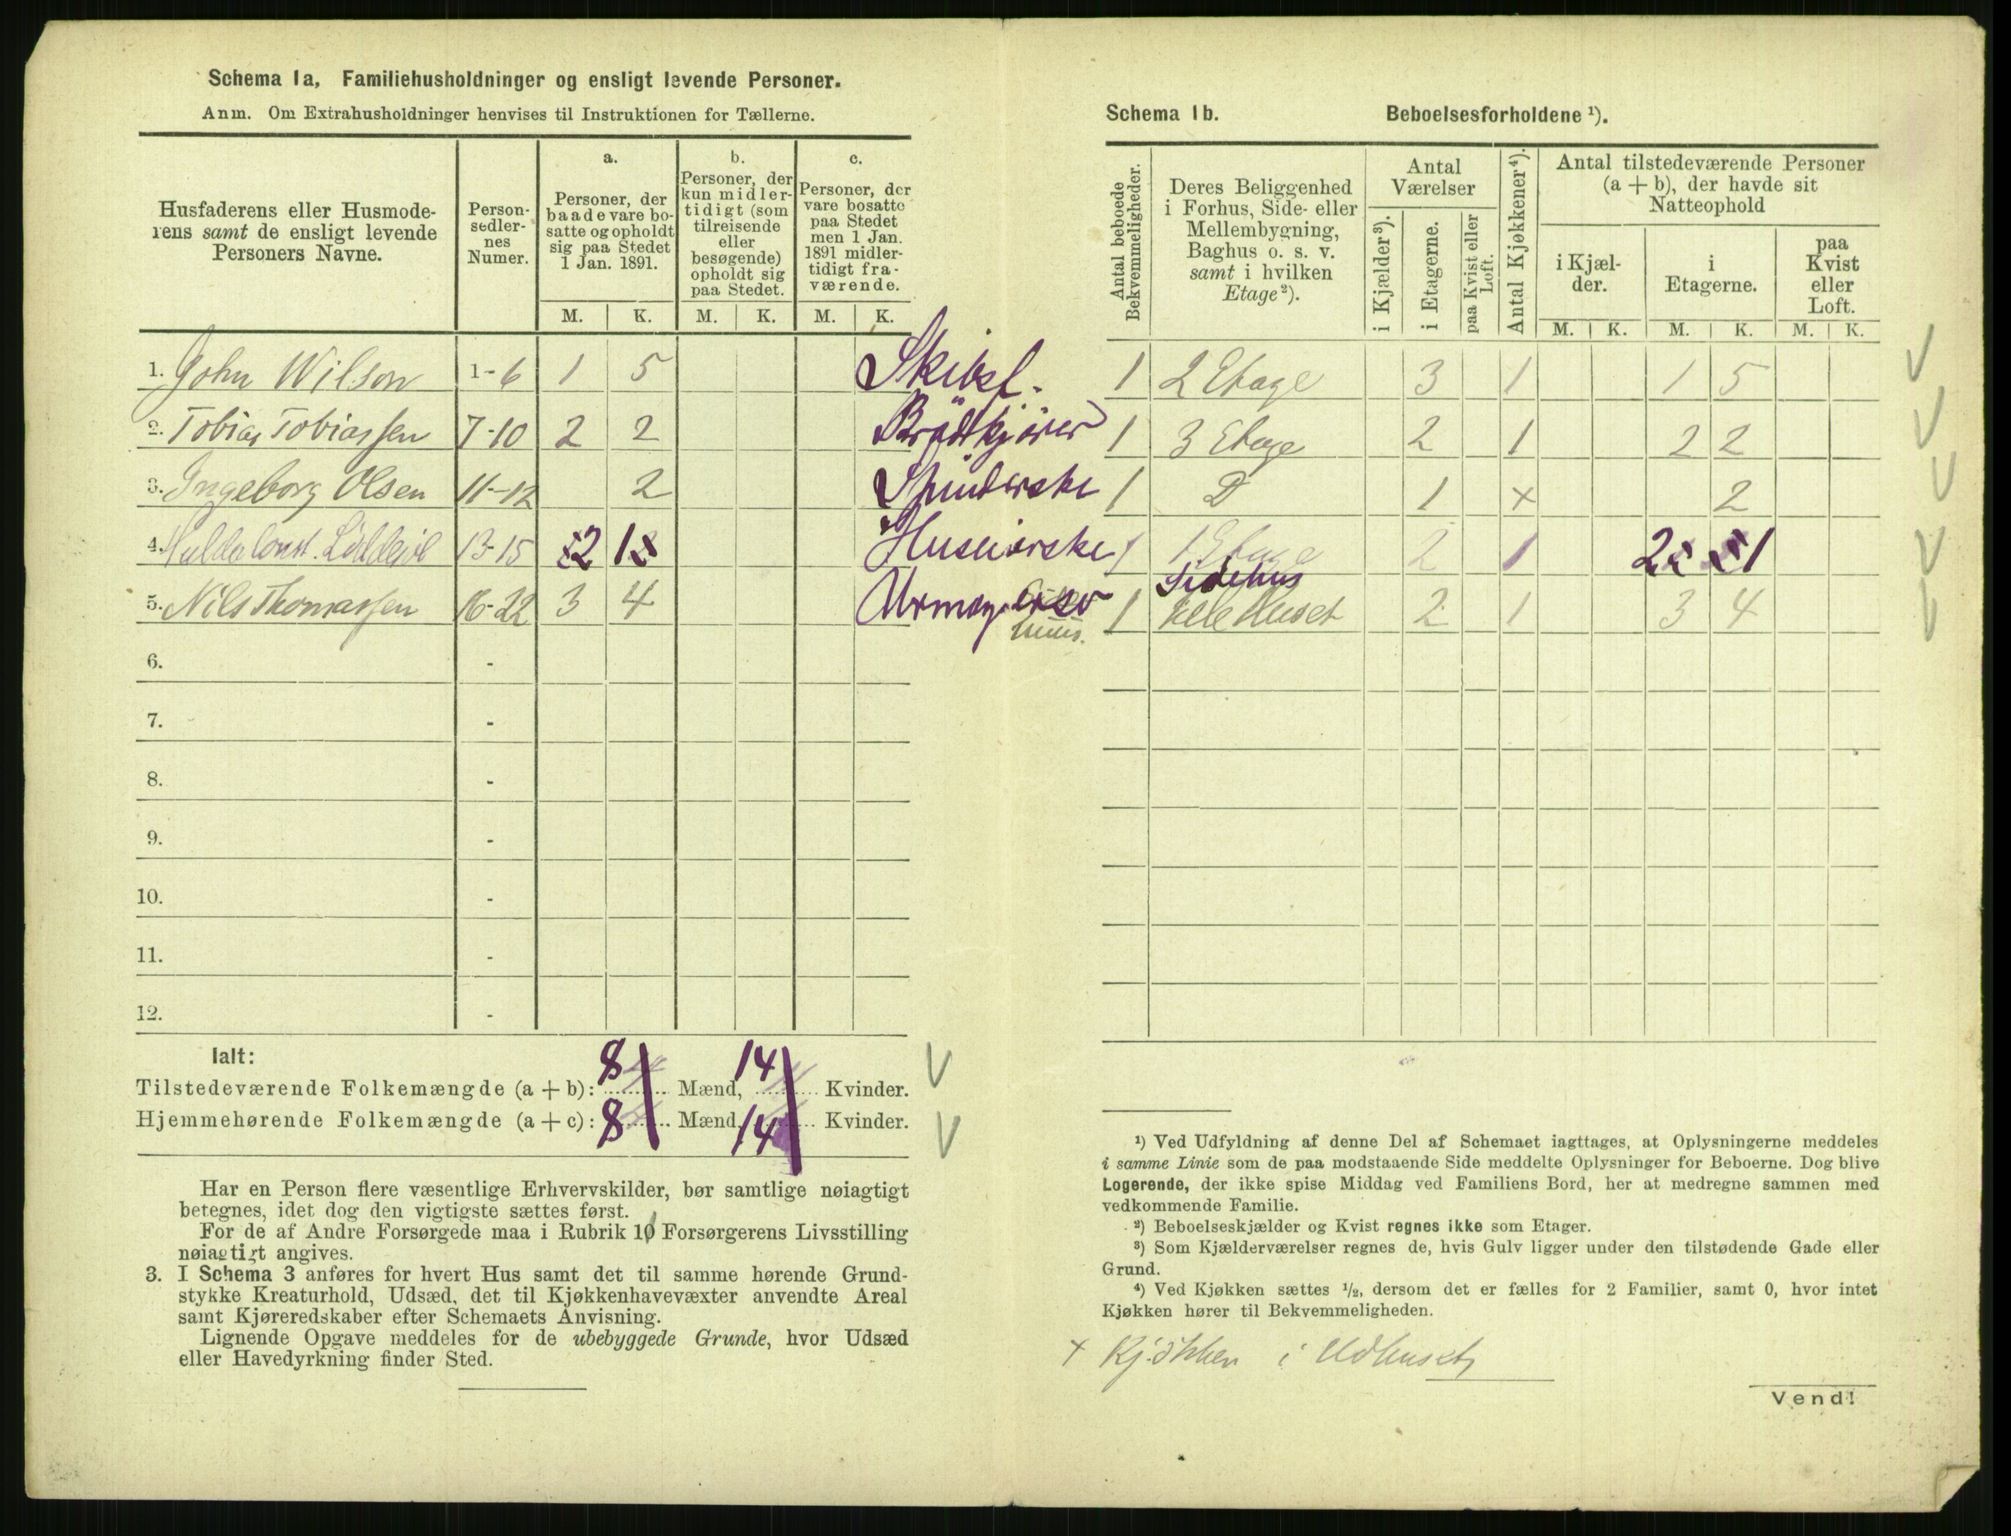 Schema 1a, Familiehusholdninger og ensligt levende Personer.
Anm. Om Extrahusholdninger henvises til Instruktionen for Tællerne.
Husfaderens eller Husmoderens samt de ensligt levende Personers Navne.
Personsedlernes Numer.
a. Personer, der baade vare bosatte og opholdt sig paa Stedet 1 Jan. 1891.
b. Personer, der kun midlertidigt (som tilreisende eller besøgende) opholdt sig paa Stedet.
c. Personer, der vare bosatte paa Stedet men 1 Jan. 1891 midlertidigt fraværende.
M. K. M. K. M. K.
1. John Wilson 1-6 1 5 Skibsf.
2. Tobias Tobiassen 7-10 2 2 Brödkjörer
3. Ingeborg Olsen 11-12 2 Spinderske
4. Hulda Const. 13-15 2 1 Huseierske
5. Nils Thomassen 16-22 3 4 Urmager
6. -
7. -
8. -
9. -
10. -
11. -
12. -
Ialt:
Tilstedeværende Folkemængde (a + b): 8 Mænd, 14 Kvinder.
Hjemmehørende Folkemængde (a + c): 8 Mænd, 14 Kvinder.
Har en Person flere væsentlige Erhvervskilder, bør samtlige nøiagtigt
betegnes, idet dog den vigtigste sættes først.
For de af Andre Forsørgede maa i Rubrik 10 Forsørgerens Livsstilling
nøiagtigt angives.
3. I Schema 3 anføres for hvert Hus samt det til samme hørende Grund-
stykke Kreaturhold, Udsæd, det til Kjøkkenhavevæxter anvendte Areal
samt Kjøreredskaber efter Schemaets Anvisning.
Lignende Opgave meddeles for de ubebyggede Grunde, hvor Udsæd
eller Havedyrkning finder Sted.
Schema 1b. Beboelsesforholdene ¹).
Antal beboede Bekvemmeligheder.
Deres Beliggenhed i Forhus, Side- eller Mellembygning, Baghus o. s. v. samt i hvilken Etage²).
Antal Værelser
i Kjælder³).
i Etagerne.
paa Kvist eller Loft.
Antal Kjøkkener⁴).
Antal tilstedeværende Personer (a + b), der havde sit Natteophold
i Kjælder.
i Etagerne.
paa Kvist eller Loft.
M. K. M. K. M. K.
1 2 Etage 3 1 1 5
1 3 Etage 2 1 2 2
1 D 1 × 2
1 1 Etage 2 1 2 1
Sidehus
1 hele Huset 2 1 3 4
¹) Ved Udfyldning af denne Del af Schemaet iagttages, at Oplysningerne meddeles
i samme Linie som de paa modstaaende Side meddelte Oplysninger for Beboerne. Dog blive
Logerende, der ikke spise Middag ved Familiens Bord, her at medregne sammen med
vedkommende Familie.
²) Beboelseskjælder og Kvist regnes ikke som Etager.
³) Som Kjælderværelser regnes de, hvis Gulv ligger under den tilstødende Gade eller
Grund.
⁴) Ved Kjøkken sættes ½, dersom det er fælles for 2 Familier, samt 0, hvor intet
Kjøkken hører til Bekvemmeligheden.
× Kjökken i Udhuset
Vend!